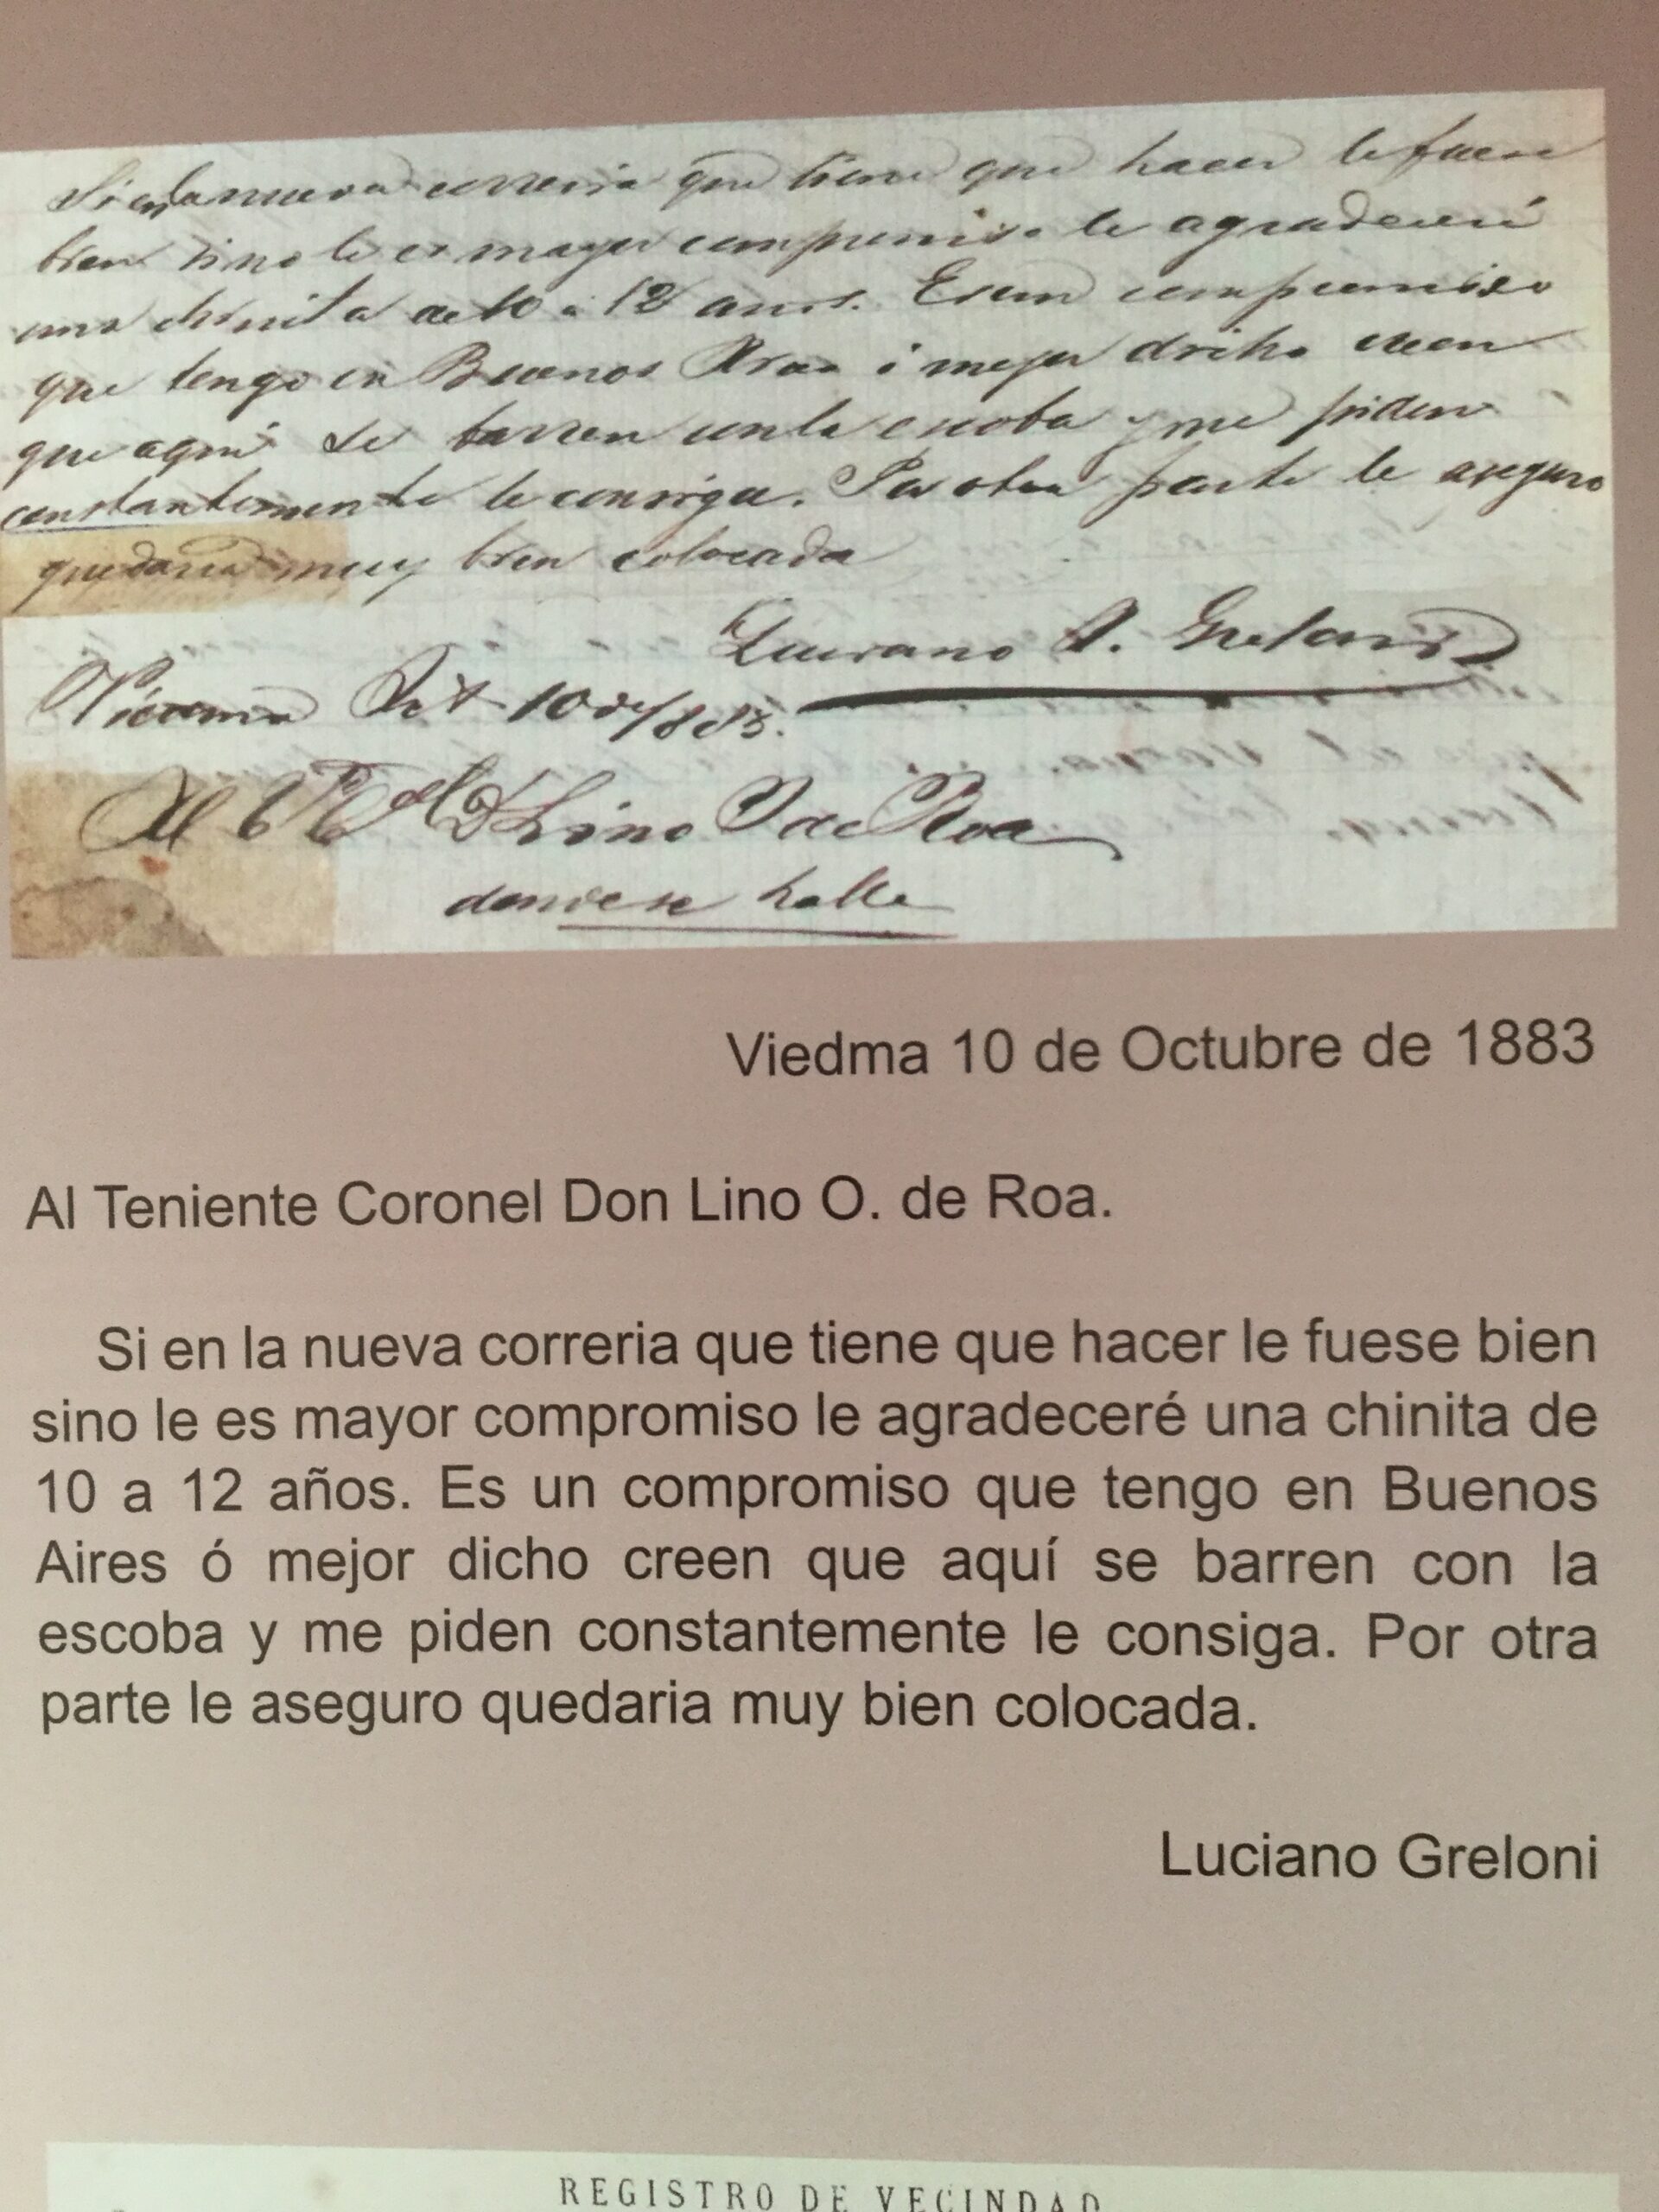 Si en la nueva correria que tiene que hacer le fuese
bien sino le es mayor compromiso le agradeceré
una chinita de 10 a 12 anos. Es un compromiso
que tengo en Buenos Aires ó mejor dicho creen
que aquí se barren con la escoba y me piden
constantemente le consiga. Por otra parte le aseguro
quedaria muy bien colocada
Luciano A. Greloni
Viedma Oct 10 de 1883.
Al Lino O de Roa
donde se halle
Viedma 10 de Octubre de 1883
Al Teniente Coronel Don Lino O. de Roa.
Si en la nueva correria que tiene que hacer le fuese bien
sino le es mayor compromiso le agradeceré una chinita de
10 a 12 años. Es un compromiso que tengo en Buenos
Aires ó mejor dicho creen que aquí se barren con la
escoba y me piden constantemente le consiga. Por otra
parte le aseguro quedaria muy bien colocada.
Luciano Greloni
REGISTRO DE VECINDAD